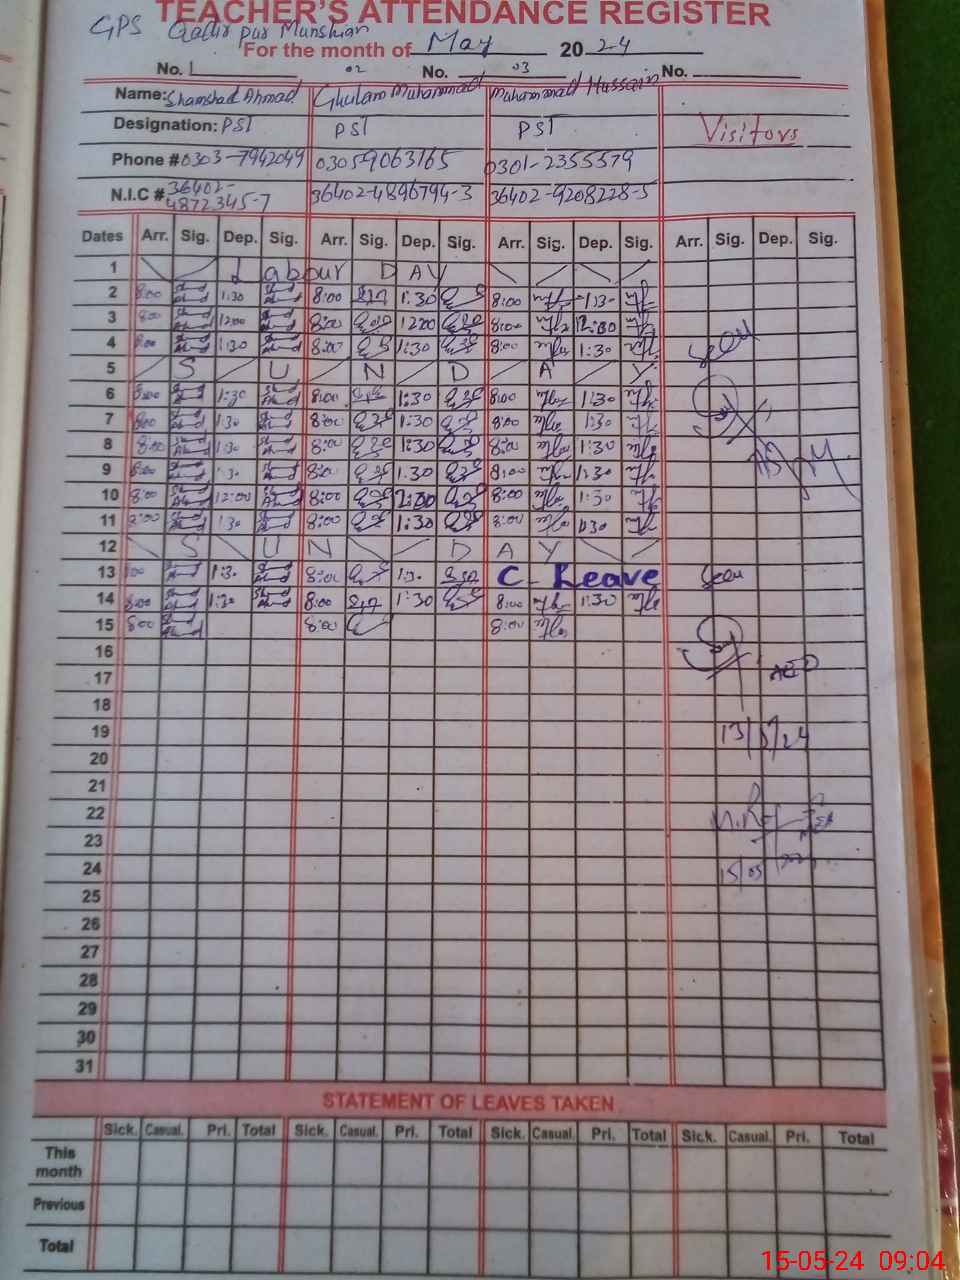 TEACHER'S ATTENDANCE REGISTER
GPS Qadir pur Munshian
For the month of May 2024
No. 1 02 No. 03 No.
Name: Shamshad Ahmad Ghulam Muhammad Muhammad Hussain
Designation: PST PST PST Visitors
Phone # 0303-7942049 03059063165 0301-2355579
N.I.C # 36402-4872345-7 36402-4896794-3 36402-9208228-5
Dates Arr. Sig. Dep. Sig. Arr. Sig. Dep. Sig. Arr. Sig. Dep. Sig. Arr. Sig. Dep. Sig.
1 Labour DAY
2 8:00 1:30 8:00 1:30 8:00 1:30
3 8:00 12:00 8:00 12:00 8:00 12:00
4 8:00 1:30 8:00 1:30 8:00 1:30 Seen
5 S U N D A Y
6 8:00 1:30 8:00 1:30 8:00 1:30
7 8:00 1:30 8:00 1:30 8:00 1:30
8 8:00 1:30 8:00 1:30 8:00 1:30
9 8:00 1:30 8:00 1:30 8:00 1:30
10 8:00 12:00 8:00 12:00 8:00 1:30
11 8:00 1:30 8:00 1:30 8:00 1:30
12 S U N D A Y
13 8:00 1:30 8:00 1:30 C-Leave Seen
14 8:00 1:30 8:00 1:30 8:00 1:30
15 8:00 8:00 8:00
16
17 AEO
18
19 13/5/24
20
21
22
23
24 15/05/2024
25
26
27
28
29
30
31
STATEMENT OF LEAVES TAKEN
Sick. Casual. Pri. Total Sick. Casual. Pri. Total Sick. Casual. Pri. Total Sick. Casual. Pri. Total
This month
Previous
Total
15-05-24 09:04